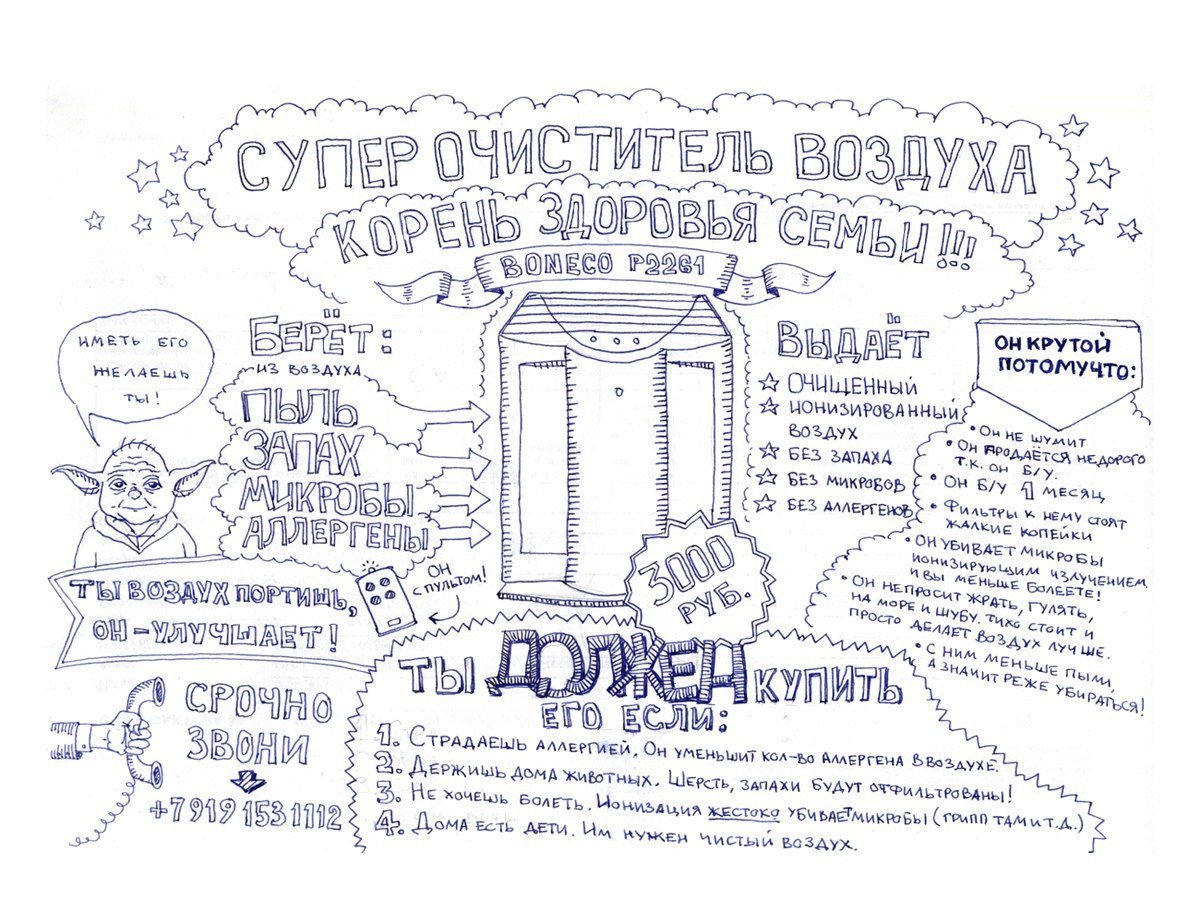 СУПЕР ОЧИСТИТЕЛЬ ВОЗДУХА
КОРЕНЬ ЗДОРОВЬЯ СЕМЬИ!!!
BONECO P2261
ИМЕТЬ ЕГО
ЖЕЛАЕШЬ
ТЫ!
БЕРЁТ:
ИЗ ВОЗДУХА
ПЫЛЬ
ЗАПАХ
МИКРОБЫ
АЛЛЕРГЕНЫ
ВЫДАЁТ
ОЧИЩЕННЫЙ
ИОНИЗИРОВАННЫЙ
ВОЗДУХ
БЕЗ ЗАПАХА
БЕЗ МИКРОБОВ
БЕЗ АЛЛЕРГЕНОВ
ОН КРУТОЙ
ПОТОМУЧТО:
• ОН НЕ ШУМИТ
• ОН ПРОДАЁТСЯ НЕДОРОГО
Т.К. ОН Б/У.
• ОН Б/У 1 МЕСЯЦ
• ФИЛЬТРЫ К НЕМУ СТОЯТ
ЖАЛКИЕ КОПЕЙКИ
• ОН УБИВАЕТ МИКРОБЫ
ИОНИЗИРУЮЩИМ ИЗЛУЧЕНИЕМ.
И ВЫ МЕНЬШЕ БОЛЕЕТЕ!
• ОН НЕПРОСИТ ЖРАТЬ, ГУЛЯТЬ,
НА МОРЕ И ШУБУ. ТИХО СТОИТ И
ПРОСТО ДЕЛАЕТ ВОЗДУХ ЛУЧШЕ.
• С НИМ МЕНЬШЕ ПЫЛИ,
А ЗНАЧИТ РЕЖЕ УБИРАТЬСЯ!
3000
РУБ.
ОН
С ПУЛЬТОМ!
ТЫ ВОЗДУХ ПОРТИШЬ,
ОН - УЛУЧШАЕТ!
СРОЧНО
ЗВОНИ
+7 919 153 1112
ТЫ ДОЛЖЕН КУПИТЬ
ЕГО ЕСЛИ:
1. СТРАДАЕШЬ АЛЛЕРГИЕЙ. ОН УМЕНЬШИТ КОЛ-ВО АЛЛЕРГЕНА В ВОЗДУХЕ.
2. ДЕРЖИШЬ ДОМА ЖИВОТНЫХ. ШЕРСТЬ, ЗАПАХИ БУДУТ ОТФИЛЬТРОВАНЫ!
3. НЕ ХОЧЕШЬ БОЛЕТЬ. ИОНИЗАЦИЯ ЖЕСТОКО УБИВАЕТ МИКРОБЫ (ГРИПП ТАМ И Т.Д.)
4. ДОМА ЕСТЬ ДЕТИ. ИМ НУЖЕН ЧИСТЫЙ ВОЗДУХ.